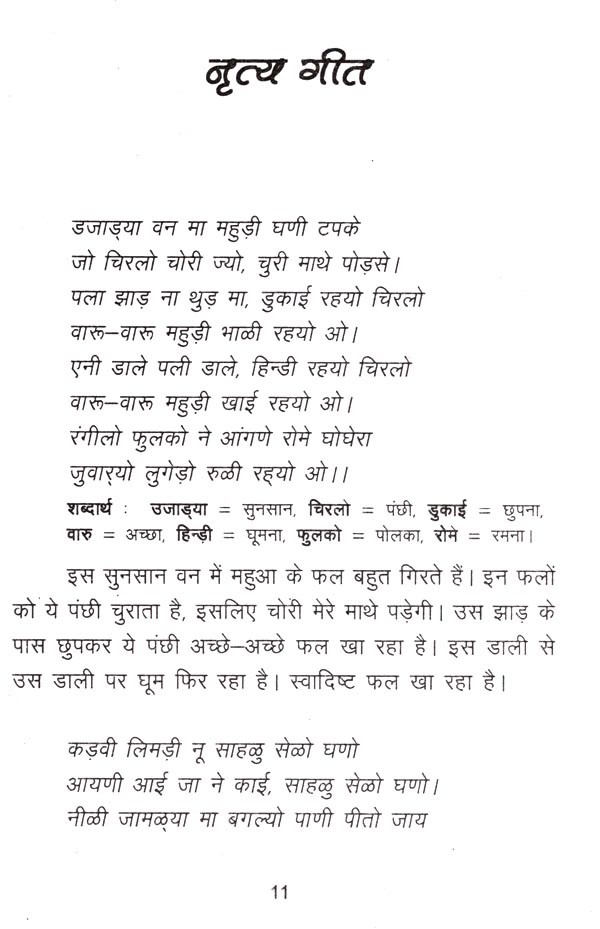 नृत्य गीत
डजाड्या वन मा महुड़ी घणी टपके
जो चिरलो चोरी ज्यो, चुरी माथे पोड़से।
पला झाड़ ना थुड़ मा, डुकाई रहयो चिरलो
वारू–वारू महुड़ी भाळी रहयो ओ।
एनी डाले पली डाले, हिन्डी रहयो चिरलो
वारू–वारू महुड़ी खाई रहयो ओ।
रंगीलो फुलको ने आंगणे रोमे घोघेरा
जुवार्‌यो लुगेड़ो रुळी रह्यो ओ।।
शब्दार्थ : उजाड्या = सुनसान, चिरलो = पंछी, डुकाई = छुपना,
वारु = अच्छा, हिन्ड़ी = घूमना, फुलको = पोलका, रोमे = रमना।
इस सुनसान वन में महुआ के फल बहुत गिरते हैं। इन फलों
को ये पंछी चुराता है, इसलिए चोरी मेरे माथे पड़ेगी। उस झाड़ के
पास छुपकर ये पंछी अच्छे–अच्छे फल खा रहा है। इस डाली से
उस डाली पर घूम फिर रहा है। स्वादिष्ट फल खा रहा है।
कड़वी लिमड़ी नू साहळु सेळो घणो
आयणी आई जा ने काई, साहळु सेळो घणो।
नीळी जामळ्या मा बगल्यो पाणी पीतो जाय
11